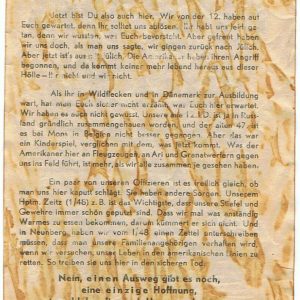 Jetzt bist Du also auch hier. Wir von der 12. haben auf
Euch gewartet, denn Ihr solltet uns ablösen. Ihr habt uns leid ge-
tan, denn wir wussten, was Euch bevorsteht. Aber gefreut haben
wir uns doch, als man uns sagte, wir gingen zurück nach Jülich.
Aber jetzt ist's aus mit Jülich. Die Amerikaner haben ihren Angriff
begonnen, und da kommt keiner mehr lebend heraus aus dieser
Hölle — Ihr nicht und wir nicht.
Als Ihr in Wildflecken und in Dänemark zur Ausbildung
wart, hat man Euch sicher nicht erzählt, was Euch hier erwartet.
Wir haben es auch nicht gewusst. Unsere 12. I.D. ist ja in Russ-
land gründlich zusammengehauen worden, und der alten 47. ist
es bei Mons in Belgien nicht besser gegangen. Aber das war
ein Kinderspiel, verglichen mit dem, was jetzt kommt. Was der
Amerikaner hier an Flugzeugen, an Ari und Granatwerfern gegen
uns ins Feld führt, ist mehr, als wir alle zusammen je gesehen haben.
Ein paar von unseren Offizieren ist es freilich gleich, ob
man uns hier kaputt schlägt. Sie haben andere Sorgen. Unserem
Hptm. Zeitz (1/48) z. B. ist das Wichtigste, dass unsere Stiefel und
Gewehre immer schön geputzt sind. Dass wir mal was anständig
Warmes zu essen bekommen, darum kümmert er sich nicht.
Und in Neunberg, haben wir vom 1/48 einen Zettel unterschreiben
müssen, dass man unsere Familienangehörigen verhaften wird,
wenn wir versuchen, unser Leben in den amerikanischen Linien
zu retten. So treiben sie uns hier in den sicheren Tod.
Nein, einen Ausweg gibt es noch,
eine einzige Hoffnung,